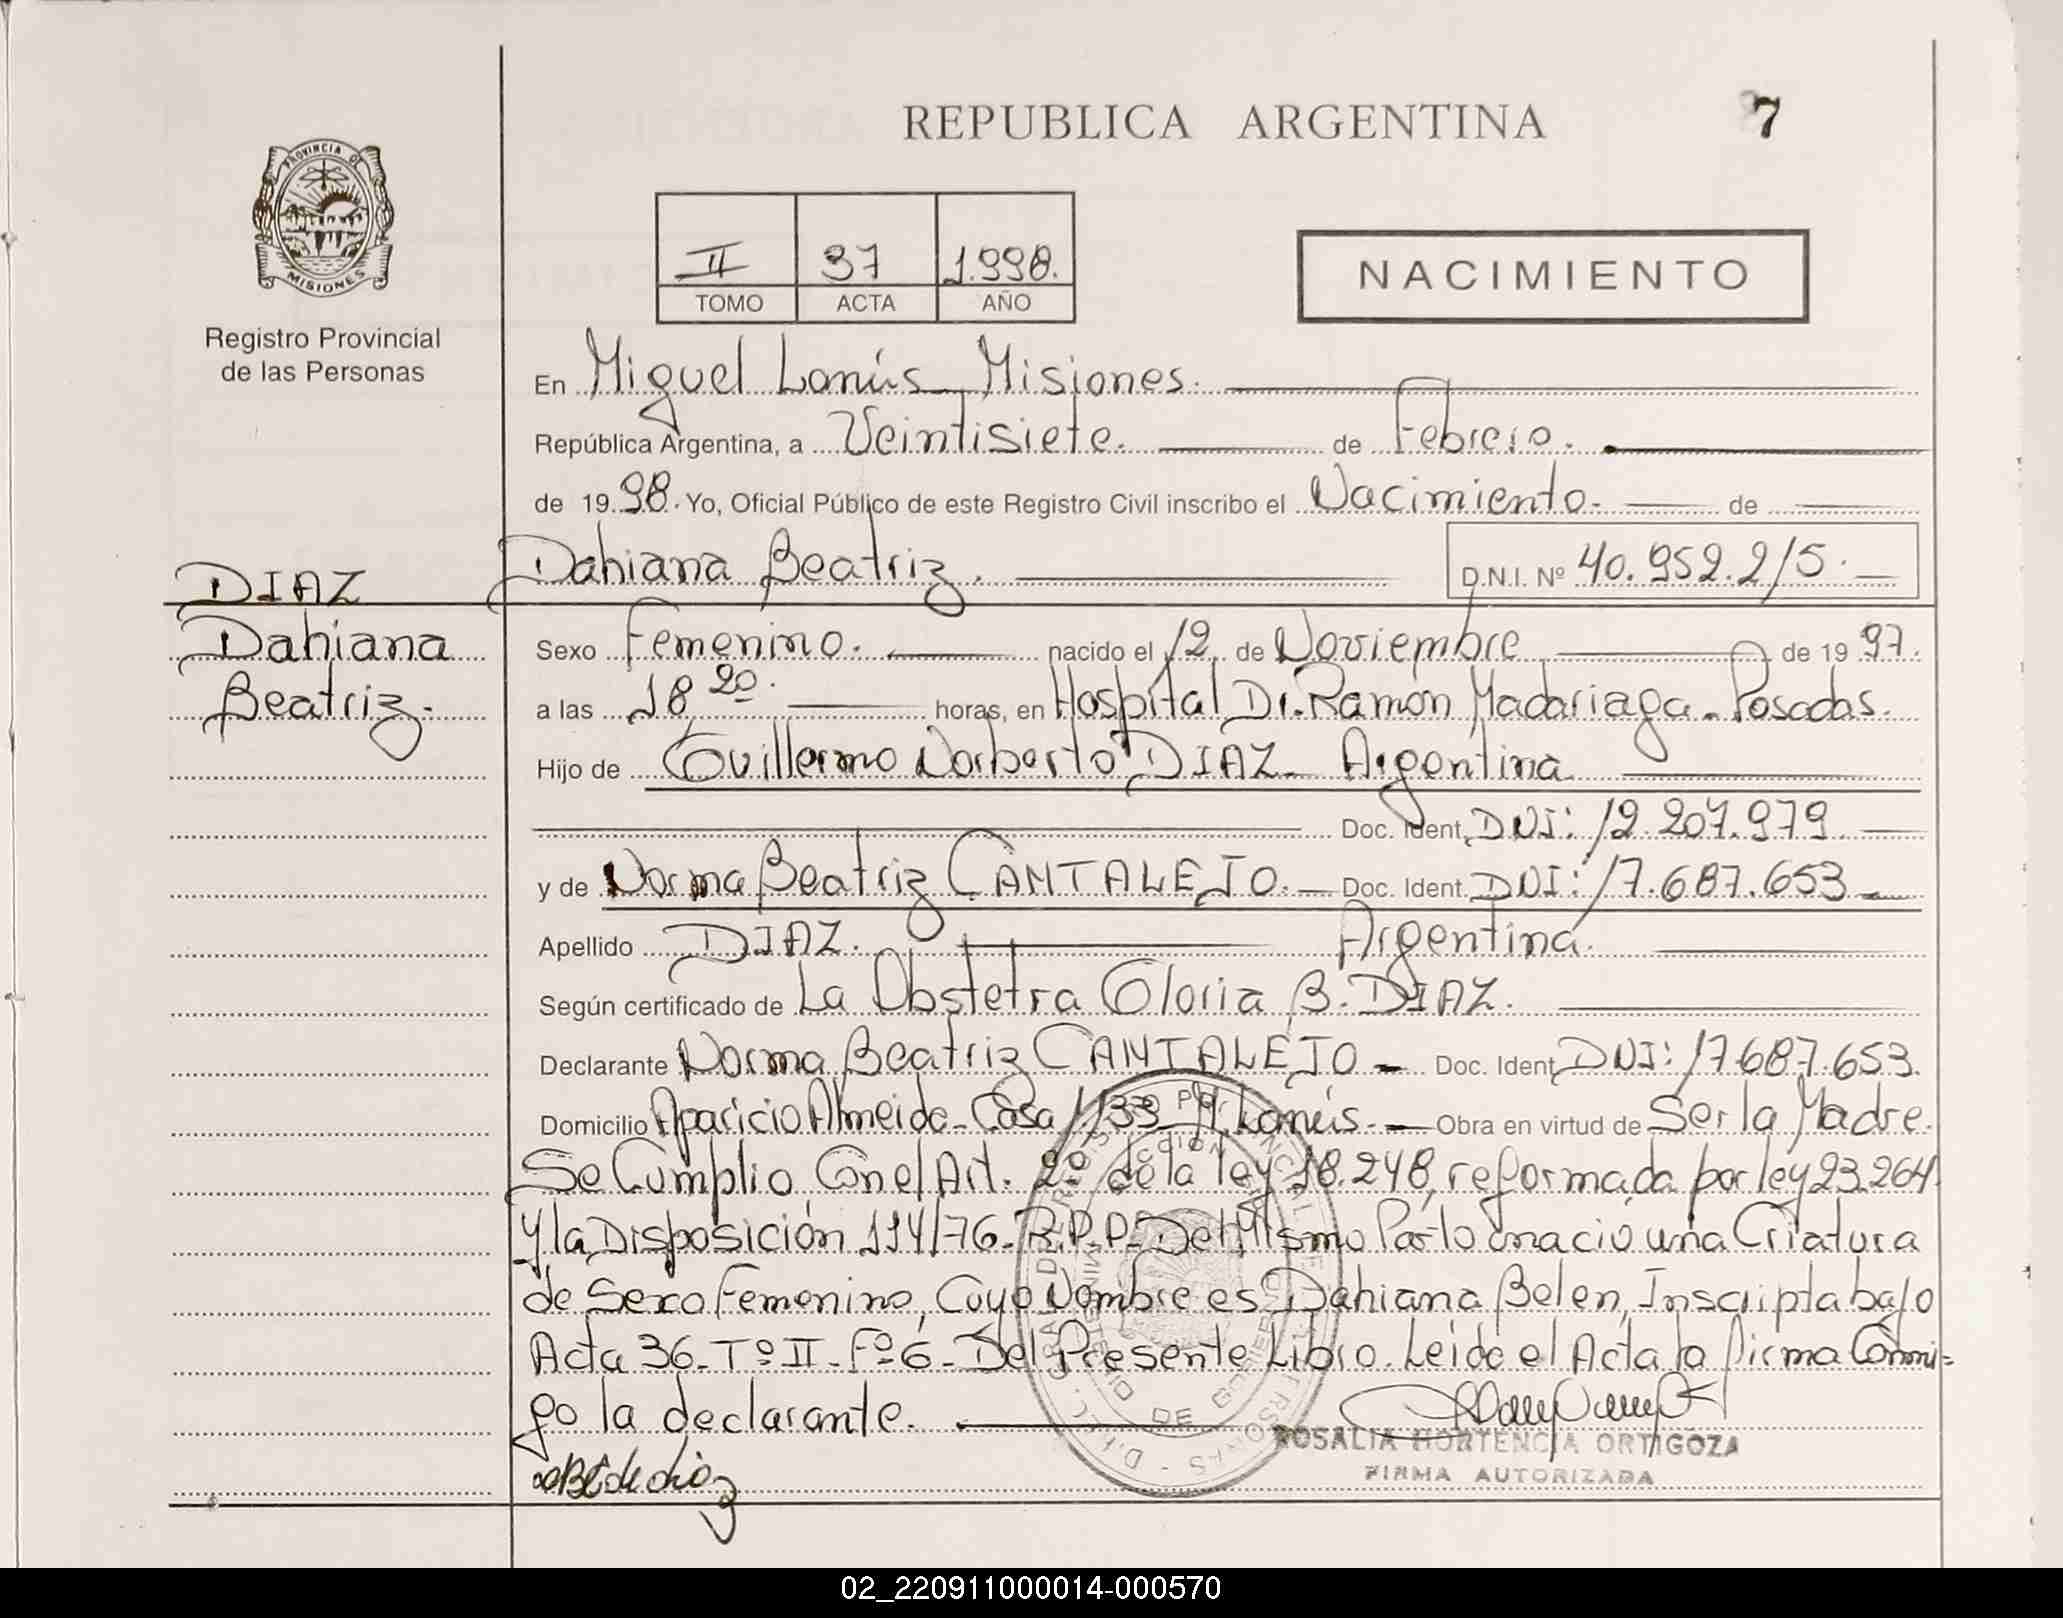 REPUBLICA ARGENTINA
7
PROVINCIA DE
MISIONES
Registro Provincial
de las Personas
II 37 1.998.
TOMO ACTA AÑO
NACIMIENTO
En Miguel Lanús Misiones.
República Argentina, a Veintisiete. de Febrero.
de 1998. Yo, Oficial Público de este Registro Civil inscribo el Nacimiento. de
DIAZ
Dahiana
Beatriz.
Dahiana Beatriz. D.N.I. Nº 40.952.215.
Sexo Femenino. nacido el 12 de Noviembre de 1997.
a las 18,20. horas, en Hospital Dr. Ramón Madariaga. Posadas.
Hijo de Guillermo Norberto DIAZ. Argentina
Doc. Ident. DNI: 12.207.979
y de Norma Beatriz CANTALEJO. Doc. Ident. DNI: 17.687.653
Apellido DIAZ. Argentina.
Según certificado de La Obstetra Gloria B. DIAZ.
Declarante Norma Beatriz CANTALEJO Doc. Ident. DNI: 17687.653.
Domicilio Aparicio Almeida-Casa 1133 M. Lanús. Obra en virtud de Ser la Madre.
Se Cumplio Con el Art. 2º de la ley 18.248, reformada por ley 23.264
y la Disposición 114/76. R.P.P. Del Mismo Parto nació una Criatura
de Sexo Femenino, Cuyo Nombre es Dahiana Belen, Inscripta bajo
Acta 36-Tº II-Fº 6-Del Presente Libro. Leida el Acta la firma Conmi=
go la declarante.
ROSALIA HORTENCIA ORTIGOZA
FIRMA AUTORIZADA
02_220911000014-000570